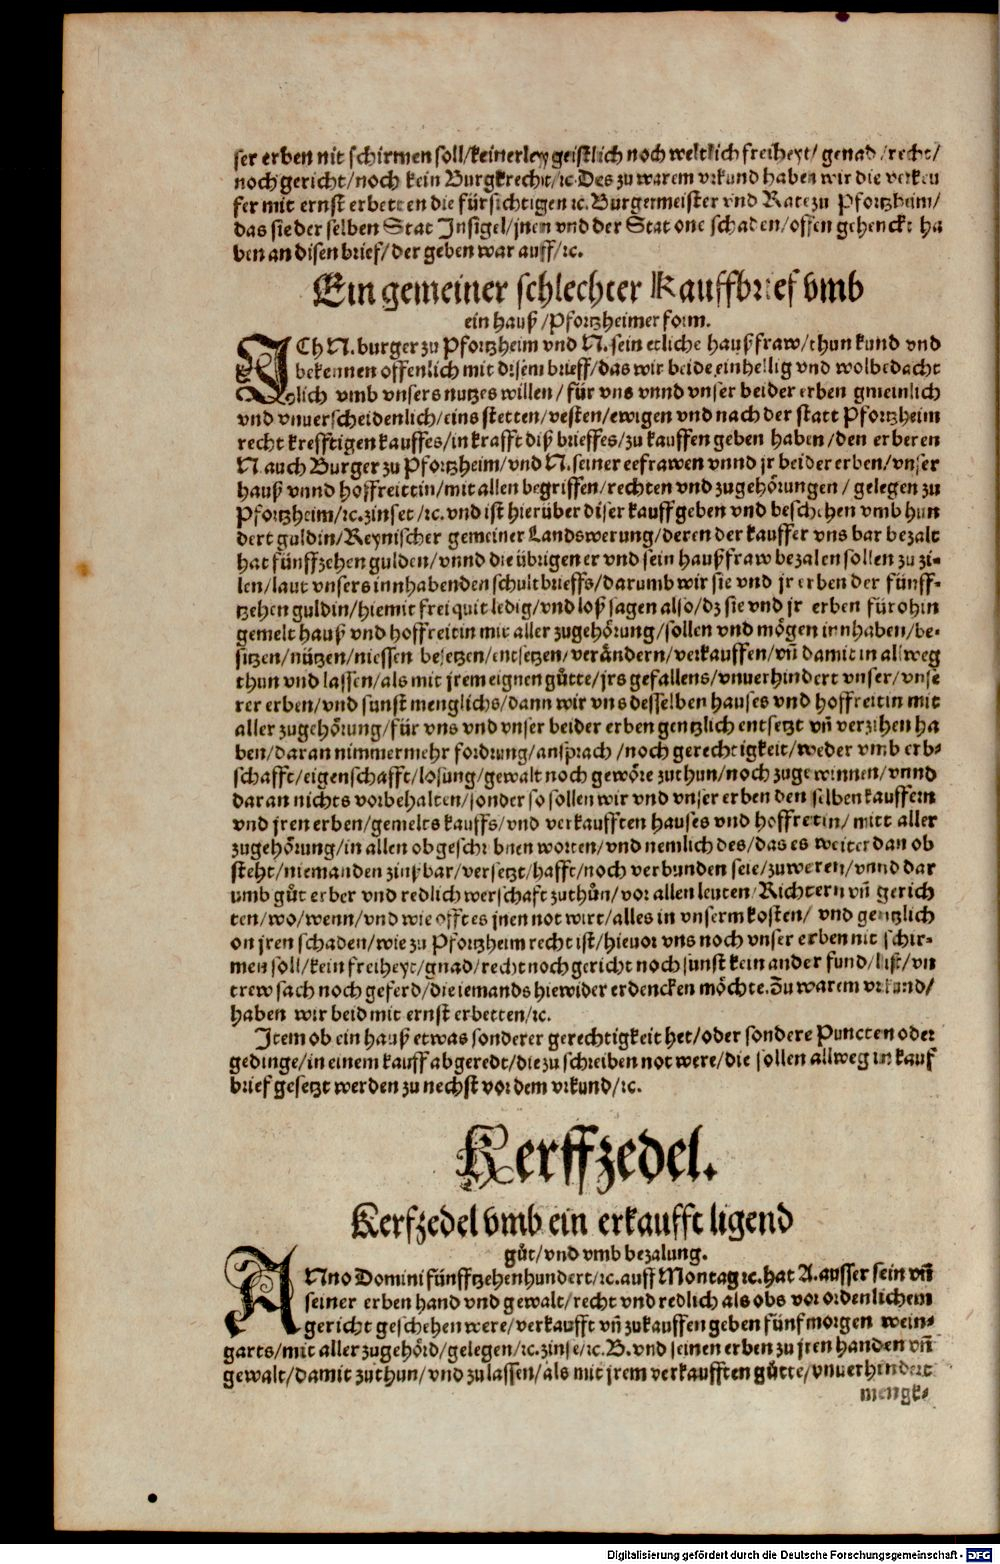 ser erben nit schirmen soll/keinerley geistlich noch weltlich freiheyt/ genad /recht/
noch gericht/noch kein Burgkrecht/ꝛc. Des zu warem vrkund haben wir die verkeu
fer mit ernst erbetten die fürsichtigen ꝛc. Burgermeister vnd Rate zu Pfortzheim/
das sie der selben Stat Insigel/jnen vnd der Stat one schaden/offen gehenckt ha
ben an disen brief/der geben war auff/ꝛc.
Ein gemeiner schlechter Kauffbrief vmb
ein hauß/Pfortzheimer form.
ICh N. burger zu Pfortzheim vnd N. sein etliche haußfraw/thun kund vnd
bekennen offenlich mit disem brieff/das wir beide einhellig vnd wolbedacht
lich vmb vnsers nutzes willen/ für vns vnnd vnser beider erben gmeinlich
vnd vnuerscheidenlich/eins stetten/vesten/ewigen vnd nach der statt Pfortzheim
recht krefftigen kauffes/in krafft diß brieffes/zu kauffen geben haben/den erberen
N. auch Burger zu Pfortzheim/vnd N. seiner eefrawen vnnd jr beider erben/vnser
hauß vnnd hoffreittin/mit allen begriffen/rechten vnd zugehörungen/ gelegen zu
Pfortzheim/ꝛc. zinset/ꝛc. vnd ist hierüber diser kauff geben vnd beschehen vmb hun
dert guldin/Reynischer gemeiner Landswerung/deren der kauffer vns bar bezalt
hat fünffzehen gulden/vnnd die übrigen er vnd sein haußfraw bezalen sollen zu zi-
len/laut vnsers innhabenden schultbrieffs/darumb wir sie vnd jr erben der fünff-
tzehen guldin/hiemit frei quit ledig/vnd loß sagen also/dz sie vnd jr erben für ohin
gemelt hauß vnd hoffreitin mit aller zugehörung/sollen vnd mögen innhaben/be-
sitzen/nützen/niessen besetzen/entsetzen/verändern/verkauffen/vñ damit in allweg
thun vnd lassen/als mit jrem eignen gůtte/jrs gefallens/vnuerhindert vnser/vnse
rer erben/vnd sunst menglichs/dann wir vns desselben hauses vnd hoffreitin mit
aller zugehörung/für vns vnd vnser beider erben gentzlich entsetzt vñ verzihen ha
ben/daran nimmermehr fordrung/ansprach/noch gerechtigkeit/weder vmb erb-
schafft/eigenschafft/losung/gewalt noch gewöre zuthun/noch zugewinnen/vnnd
daran nichts vorbehalten/sonder so sollen wir vnd vnser erben den selben kauffern
vnd jren erben/gemelts kauffs/vnd verkaufften hauses vnd hoffretin/ mitt aller
zugehörung/in allen obgeschribnen worten/vnd nemlich des/das es weiter dan ob
steht/niemanden zinßbar/versetzt/hafft/noch verbunden seie/zuweren/vnnd dar
umb gůt erber vnd redlich werschaft zuthůn/vor allen leuten/Richtern vñ gerich
ten/wo/wenn/vnd wie offt es jnen not wirt/alles in vnserm kosten/ vnd gentzlich
on jren schaden/wie zu Pfortzheim recht ist/hieuor vns noch vnser erben nit schir-
men soll/kein freiheyt/gnad/recht noch gericht noch sunst kein ander fund/list/vn
trew sach noch geferd/die iemands hiewider erdencken möchte. Zu warem vrkund/
haben wir beid mit ernst erbetten/ꝛc.
Item ob ein hauß etwas sonderer gerechtigkeit het/oder sondere Puncten oder
gedinge/in einem kauff abgeredt/die zu schreiben not were/die sollen allweg im kauf
brief gesetzt werden zu nechst vor dem vrkund/ꝛc.
Kerffzedel.
Kerfzedel vmb ein erkaufft ligend
gůt/vnd vmb bezalung.
ANno Domini fünfftzehenhundert/ꝛc. auff Montag ꝛc. hat A. ausser sein vñ
seiner erben hand vnd gewalt/recht vnd redlich als obs vor ordenlichem
gericht geschehen were/verkaufft vñ zukauffen geben fünf morgen wein-
garts/mit aller zugehörd/gelegen/ꝛc. zinse/ꝛc. B. vnd seinen erben zu jren handen vñ
gewalt/damit zuthun/vnd zulassen/als mit jrem verkaufften gůtte/vnuerhindert
mengk-
Digitalisierung gefördert durch die Deutsche Forschungsgemeinschaft - DFG